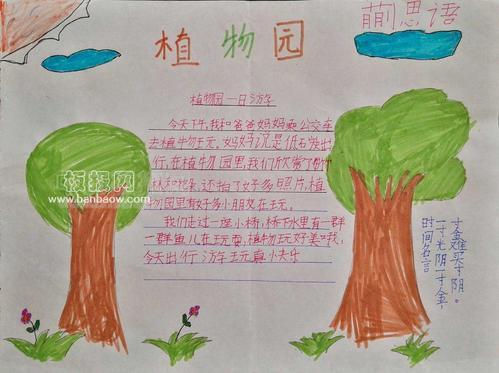 植物园
萠思语
植物园一日游
今天下午,我和爸爸妈妈乘公交车
去植牛勿玩,妈妈说是低石炭出
行,在植牛勿园里,我们欣赏了
林和花朵,还拍了好多照片,植
物园里有好多小朋友在玩。
我们走过一座小桥,桥下水里有一群
一群鱼儿在玩耍,植物玩好美哦,
今天出行游玩真快乐
时间名言
一寸光阴一寸金,
寸金难买寸光阴。
板报网
www.banbaow.com